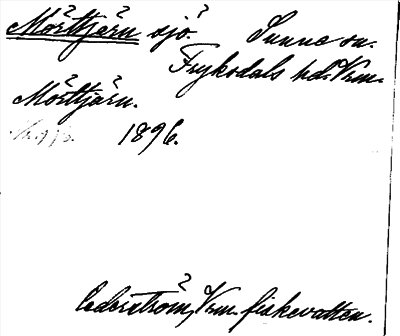 Mörttjärn sjö. Sunne sn.
Fryksdals hd. Vrm.
Mörttjärn.
1896.
Cederström, Vrm. fiskevatten.